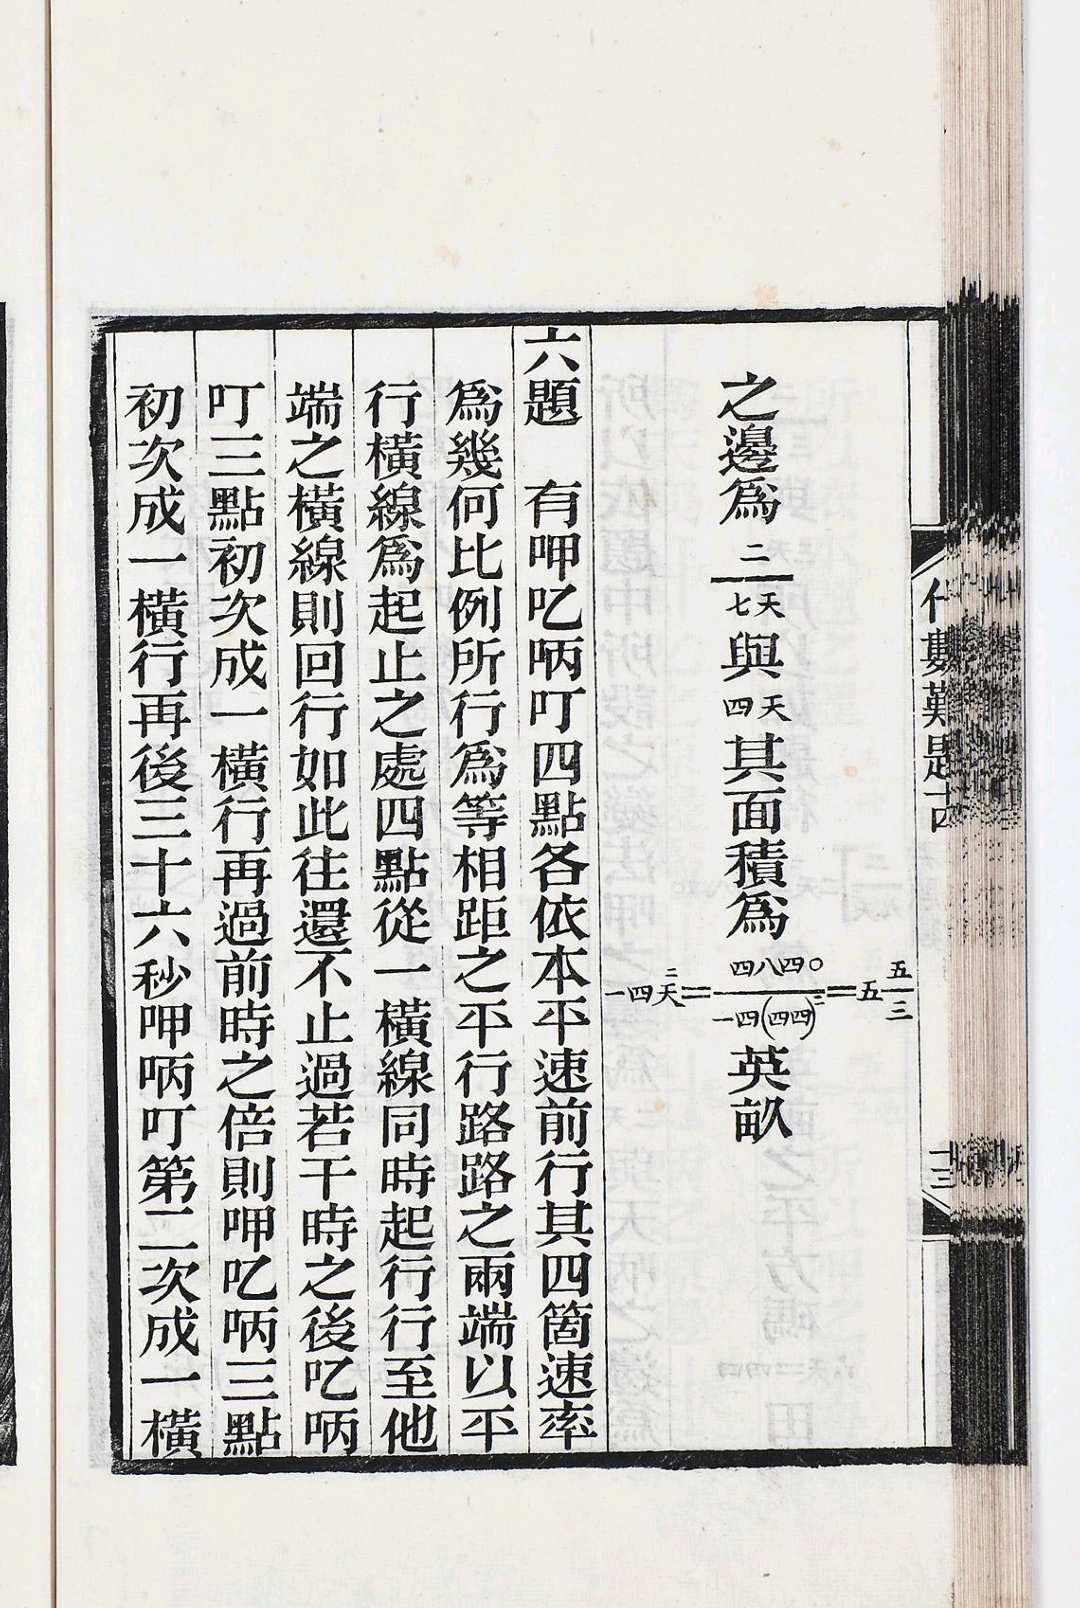 之邊爲 二/七天 與 四天 其面積爲 一四天二=四八四〇/一四(四四)二=五五/三 英畝
六題　有呷吃㕫叮四點各依本平速前行其四箇速率
爲幾何比例所行爲等相距之平行路路之兩端以平
行橫線爲起止之處四點從一橫線同時起行行至他
端之橫線則回行如此往還不止過若干時之後吃㕫
叮三點初次成一橫行再過前時之倍則呷吃㕫三點
初次成一橫行再後三十六秒呷㕫叮第二次成一橫
代數難題十四
十三